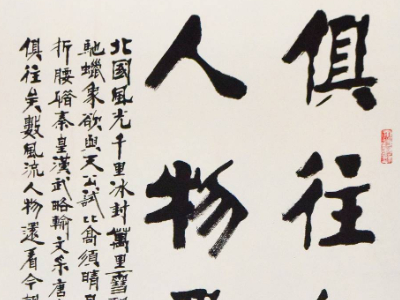 俱往
人物
北國風光千里冰封萬里雪
馳蠟象欲與天公試比高須晴
折腰惜秦皇漢武略輸文采唐
俱往矣數風流人物還看今